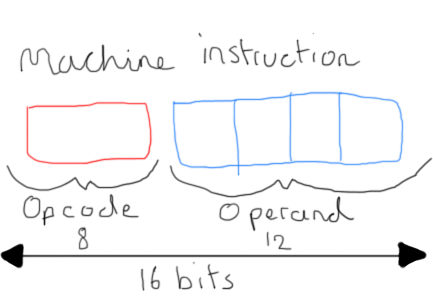 Machine instruction
Opcode Operand
8 12
16 bits